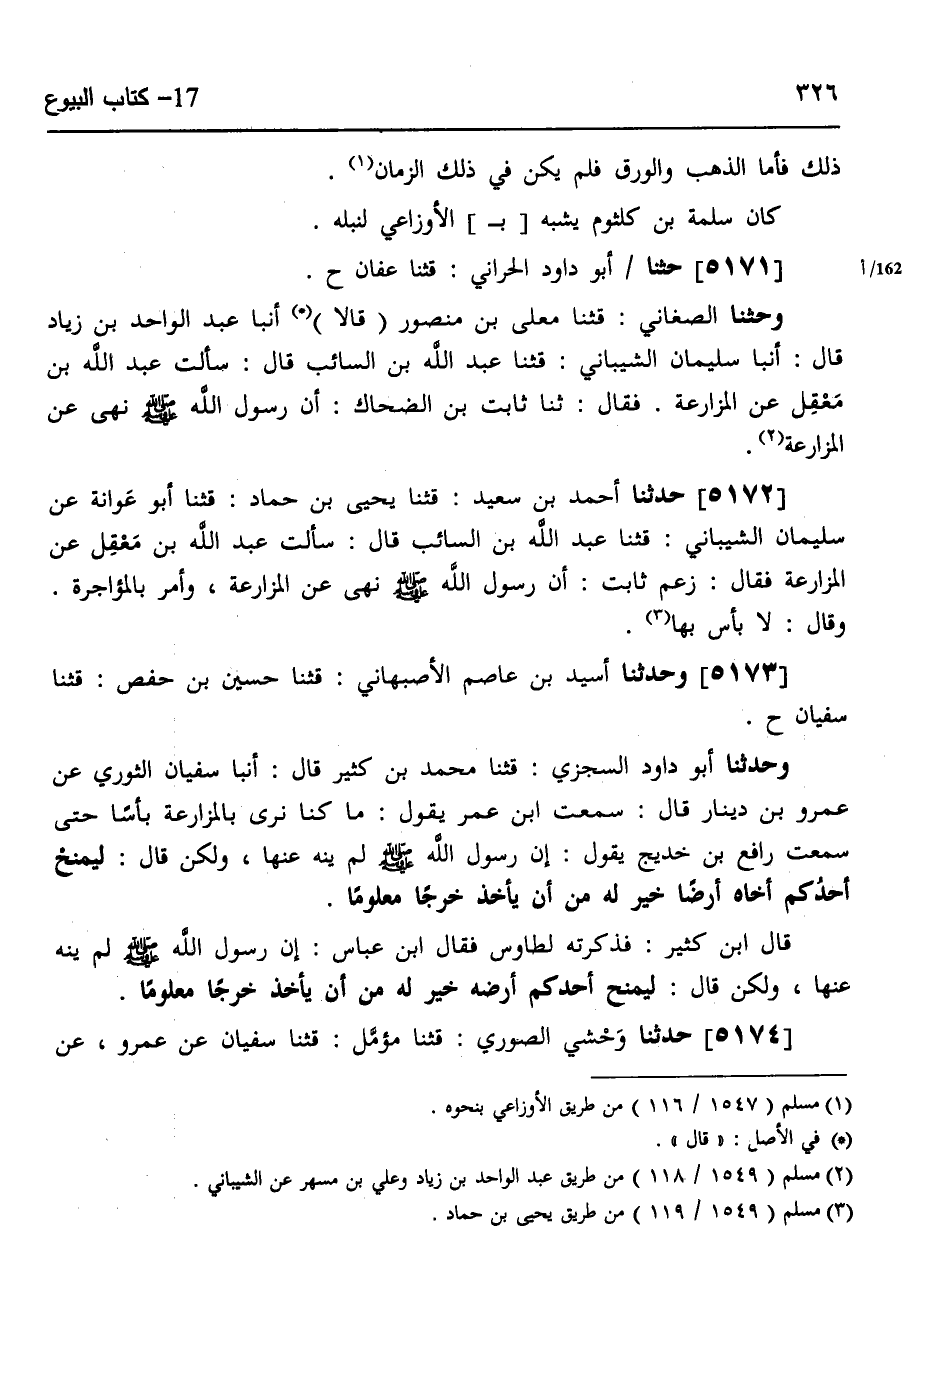 ٣٢٦
17- كتاب البيوع
ذلك فأما الذهب والورق فلم يكن في ذلك الزمان(١) .
كان سلمة بن كلثوم يشبه [ بـ ] الأوزاعي لنبله .
[٥١٧١] حثنا / أبو داود الحراني : قثنا عفان ح .
162/أ
وحثنا الصغاني : قثنا معلى بن منصور ( قالا )(*) أنبا عبد الواحد بن زياد
قال : أنبا سليمان الشيباني : قثنا عبد اللَّه بن السائب قال : سألت عبد اللَّه بن
مَعْقِل عن المزارعة . فقال : ثنا ثابت بن الضحاك : أن رسول اللَّه ﷺ نهى عن
المزارعة(٢) .
[٥١٧٢] حدثنا أحمد بن سعيد : قثنا يحيى بن حماد : قثنا أبو عَوانة عن
سليمان الشيباني : قثنا عبد اللَّه بن السائب قال : سألت عبد اللَّه بن مَعْقِل عن
المزارعة فقال : زعم ثابت : أن رسول اللَّه ﷺ نهى عن المزارعة ، وأمر بالمؤاجرة .
وقال : لا بأس بها(٣) .
[٥١٧٣] وحدثنا أسيد بن عاصم الأصبهاني : قثنا حسين بن حفص : قثنا
سفيان ح .
وحدثنا أبو داود السجزي : قثنا محمد بن كثير قال : أنبا سفيان الثوري عن
عمرو بن دينار قال : سمعت ابن عمر يقول : ما كنا نرى بالمزارعة بأسًا حتى
سمعت رافع بن خديج يقول : إن رسول اللَّه ﷺ لم ينه عنها ، ولكن قال : ليمنحْ
أحدُكم أخاه أرضًا خير له من أن يأخذ خرجًا معلومًا .
قال ابن كثير : فذكرته لطاوس فقال ابن عباس : إن رسول اللَّه ﷺ لم ينه
عنها ، ولكن قال : ليمنح أحدكم أرضه خير له من أن يأخذ خرجًا معلومًا .
[٥١٧٤] حدثنا وَحْشي الصوري : قثنا مؤمَّل : قثنا سفيان عن عمرو ، عن
(١) مسلم ( ١٥٤٧ / ١١٦ ) من طريق الأوزاعي بنحوه .
(*) في الأصل : « قال » .
(٢) مسلم ( ١٥٤٩ / ١١٨ ) من طريق عبد الواحد بن زياد وعلي بن مسهر عن الشيباني .
(٣) مسلم ( ١٥٤٩ / ١١٩ ) من طريق يحيى بن حماد .